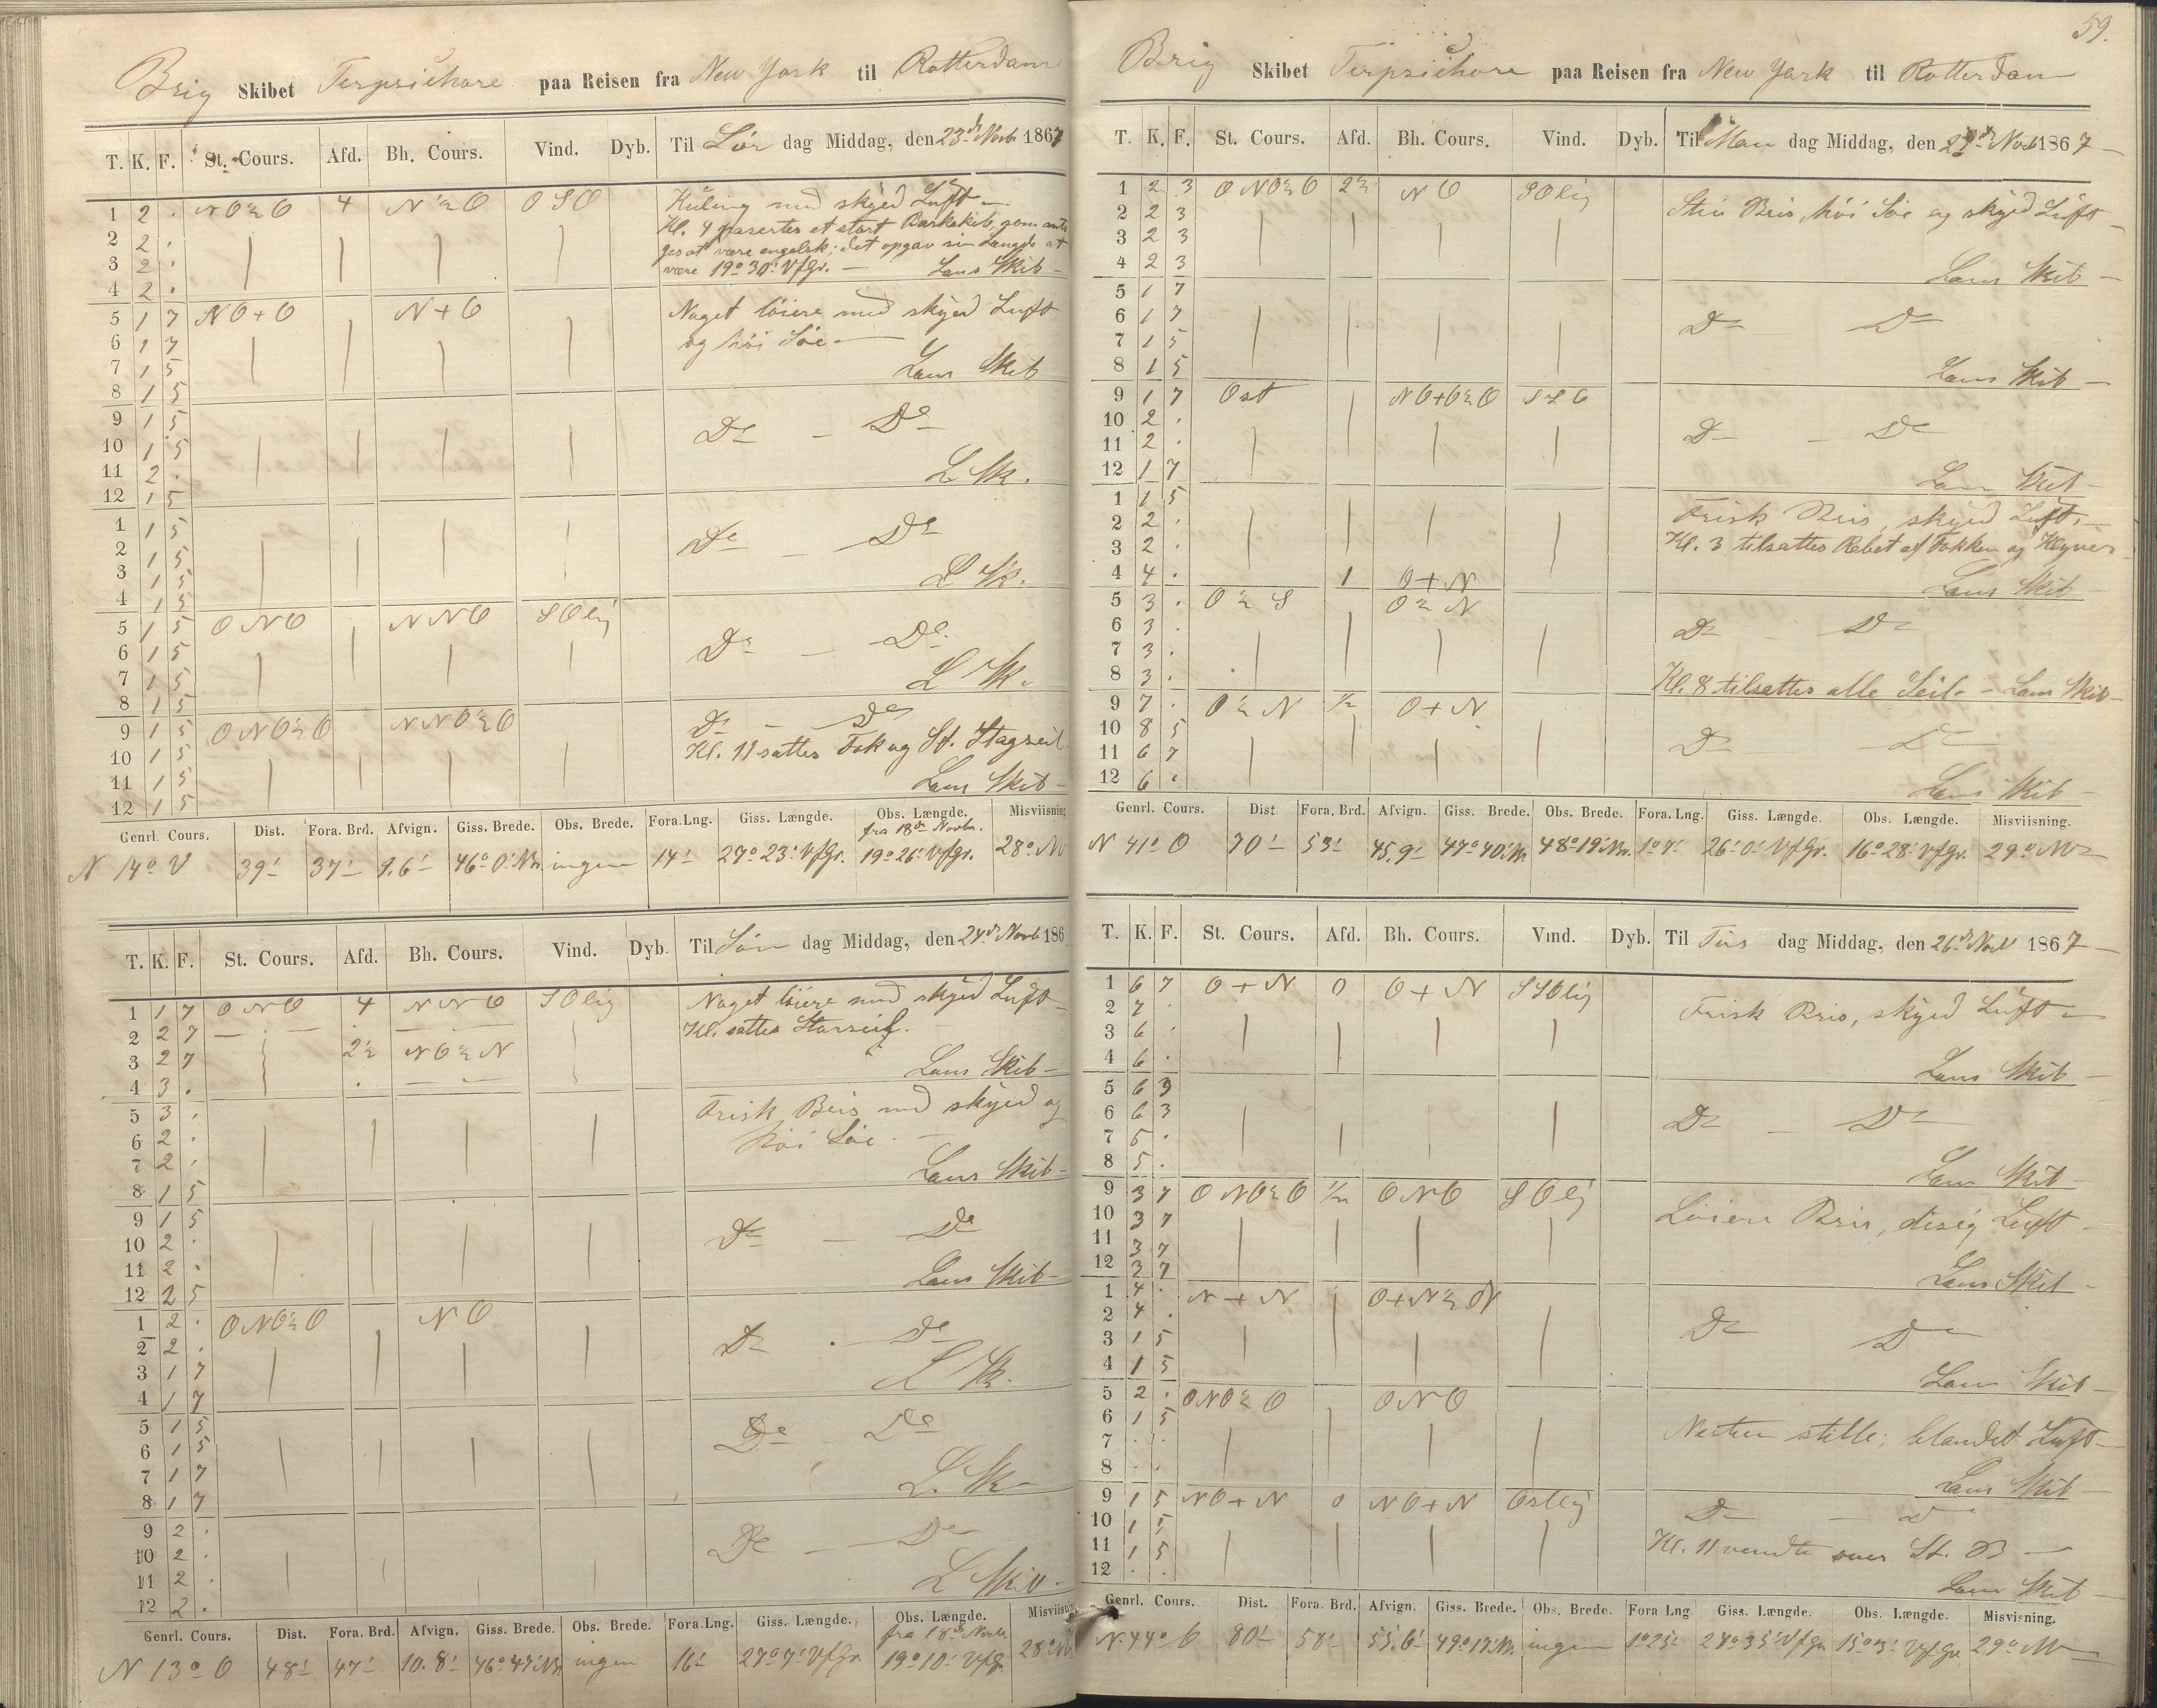 Brig Skibet Terpsichore paa Reisen fra New York til Rotterdam
T. K. F. St. Cours. Afd. Bh. Cours. Vind. Dyb. Til Lör dag Middag, den 23de Novb 1867
1 2 . NO½O 4 N½O OSO Kuling med skyed Luft
2 2 . Kl. 4 pasertes et stort Barkskib, som anto
3 2 . ges at være engelsk; det opgav sin Længde at
4 2 . være 19° 30' VfGr. — Lens Skib
5 1 7 NO+O N+O Noget löiere med skyed Luft
6 1 7 og höi Söe
7 1 5 Lens Skib
8 1 5
9 1 5 Do — Do
10 1 5
11 2 . L Sk.
12 1 5
1 1 5 Do — Do
2 1 5
3 1 5 L Sk.
4 1 5
5 1 5 ONO NNO SOlig
6 1 5 Do — Do
7 1 5 L Sk.
8 1 5
9 1 5 ONO½O NNO½O Do — Do
10 1 5 Kl. 11 sattes Fok og St. Stagseil
11 1 5 Lens Skib
12 1 5
Genrl. Cours. Dist. Fora. Brd. Afvign. Giss. Brede. Obs. Brede. Fora.Lng. Giss. Længde. Obs. Længde. Misviisning
fra 18de Novbr.
N 14° V 39' 37' 9.6' 46° 0' Nr. ingen 14' 27° 23' VfGr. 19° 26' VfGr. 28° NV
T. K. F. St. Cours. Afd. Bh. Cours. Vind. Dyb. Til Sön dag Middag, den 24de Novb 186
1 1 7 ONO 4 NNO SOlig Noget löiere med skyed Luft
2 2 7 Kl. sattes Storseil.
3 2 7 2½ NO½N
4 3 . Lens Skib
5 3 . Frisk Bris med skyed og
6 2 . höi Söe.
7 2 . Lens Skib
8 1 5
9 1 5 Do — Do
10 2 .
11 2 . Lens Skib
12 2 5
1 2 . ONO½O NO
2 2 . Do — Do
3 1 7 L Sk.
4 1 7
5 1 5 Do — Do
6 1 5
7 1 7 L. Sk
8 1 7
9 2 . Do — Do
10 2 .
11 2 . L Skib
12 2 .
Genrl. Cours. Dist. Fora. Brd. Afvign. Giss. Brede. Obs. Brede. Fora.Lng. Giss. Længde. Obs. Længde. Misviisning
fra 18de Novbr
N 13° O 48' 47' 10.8' 46° 47' Nr. ingen 16' 27° 7' VfGr 19° 10' VfGr. 28° NV
59.
Brig Skibet Terpsichore paa Reisen fra New York til Rotterdam
T. K. F. St. Cours. Afd. Bh. Cours. Vind. Dyb. Til Man dag Middag, den 25de Novb 1867
1 2 3 ONO½O 2½ NO SOlig
2 2 3 Stiv Bris, höi Söe og skyed Luft
3 2 3
4 2 3 Lens Skib
5 1 7
6 1 7 Do — Do
7 1 5
8 1 5 Lens Skib
9 1 7 Ost NO+O½O SSO
10 2 . Do — Do
11 2 .
12 1 7 Lens Skib
1 1 5 Frisk Bris, skyed Luft.
2 2 . Kl. 3 tilsattes Rebet af Fokken og Klyver
3 2 .
4 4 . 1 O+N Lens Skib
5 3 . O½S O½N
6 3 . Do — Do
7 3 .
8 3 . Kl. 8 tilsattes alle Seil. — Lens Skib
9 7 . O½N ½ O+N
10 8 5 Do — Do
11 6 7
12 6 . Lens Skib
Genrl. Cours. Dist. Fora. Brd. Afvign. Giss. Brede. Obs. Brede. Fora.Lng. Giss. Længde. Obs. Længde. Misviisning.
N 41° O 70' 53' 45.9' 47° 40' Nr. 48° 19' Nr. 1° 7' 26° 0' VfGr. 16° 28' VfGr. 29° NV
T. K. F. St. Cours. Afd. Bh. Cours. Vind. Dyb. Til Tirs dag Middag, den 26de Novb 1867
1 6 7 O+N 0 O+N SSOlig
2 7 . Frisk Bris, skyed Luft
3 6 .
4 6 . Lens Skib
5 6 3
6 6 3 Do — Do
7 5 .
8 5 . Lens Skib
9 3 7 ONO½O ½ ONO SOlig
10 3 7 Löiere Bris, disig Luft
11 3 7
12 3 7 Lens Skib
1 4 . N+N O+N½N
2 4 . Do Do
3 1 5
4 1 5 Lens Skib
5 2 . ONO½O ONO
6 1 5 Næsten stille; blandet Luft
7 . .
8 . . Lens Skib
9 1 5 NO+N 0 NO+N Ostlig Do — Do
10 1 5
11 1 5 Kl. 11 vendte over St. B
12 . . Lens Skib
Genrl. Cours. Dist. Fora. Brd. Afvign. Giss. Brede. Obs. Brede. Fora Lng Giss. Længde. Obs. Længde. Misvisning.
N 44° O 80' 58' 55.6' 49° 17' Nr. ingen 1° 25' 24° 35' VfGr 15° 3' VfGr 29° NV